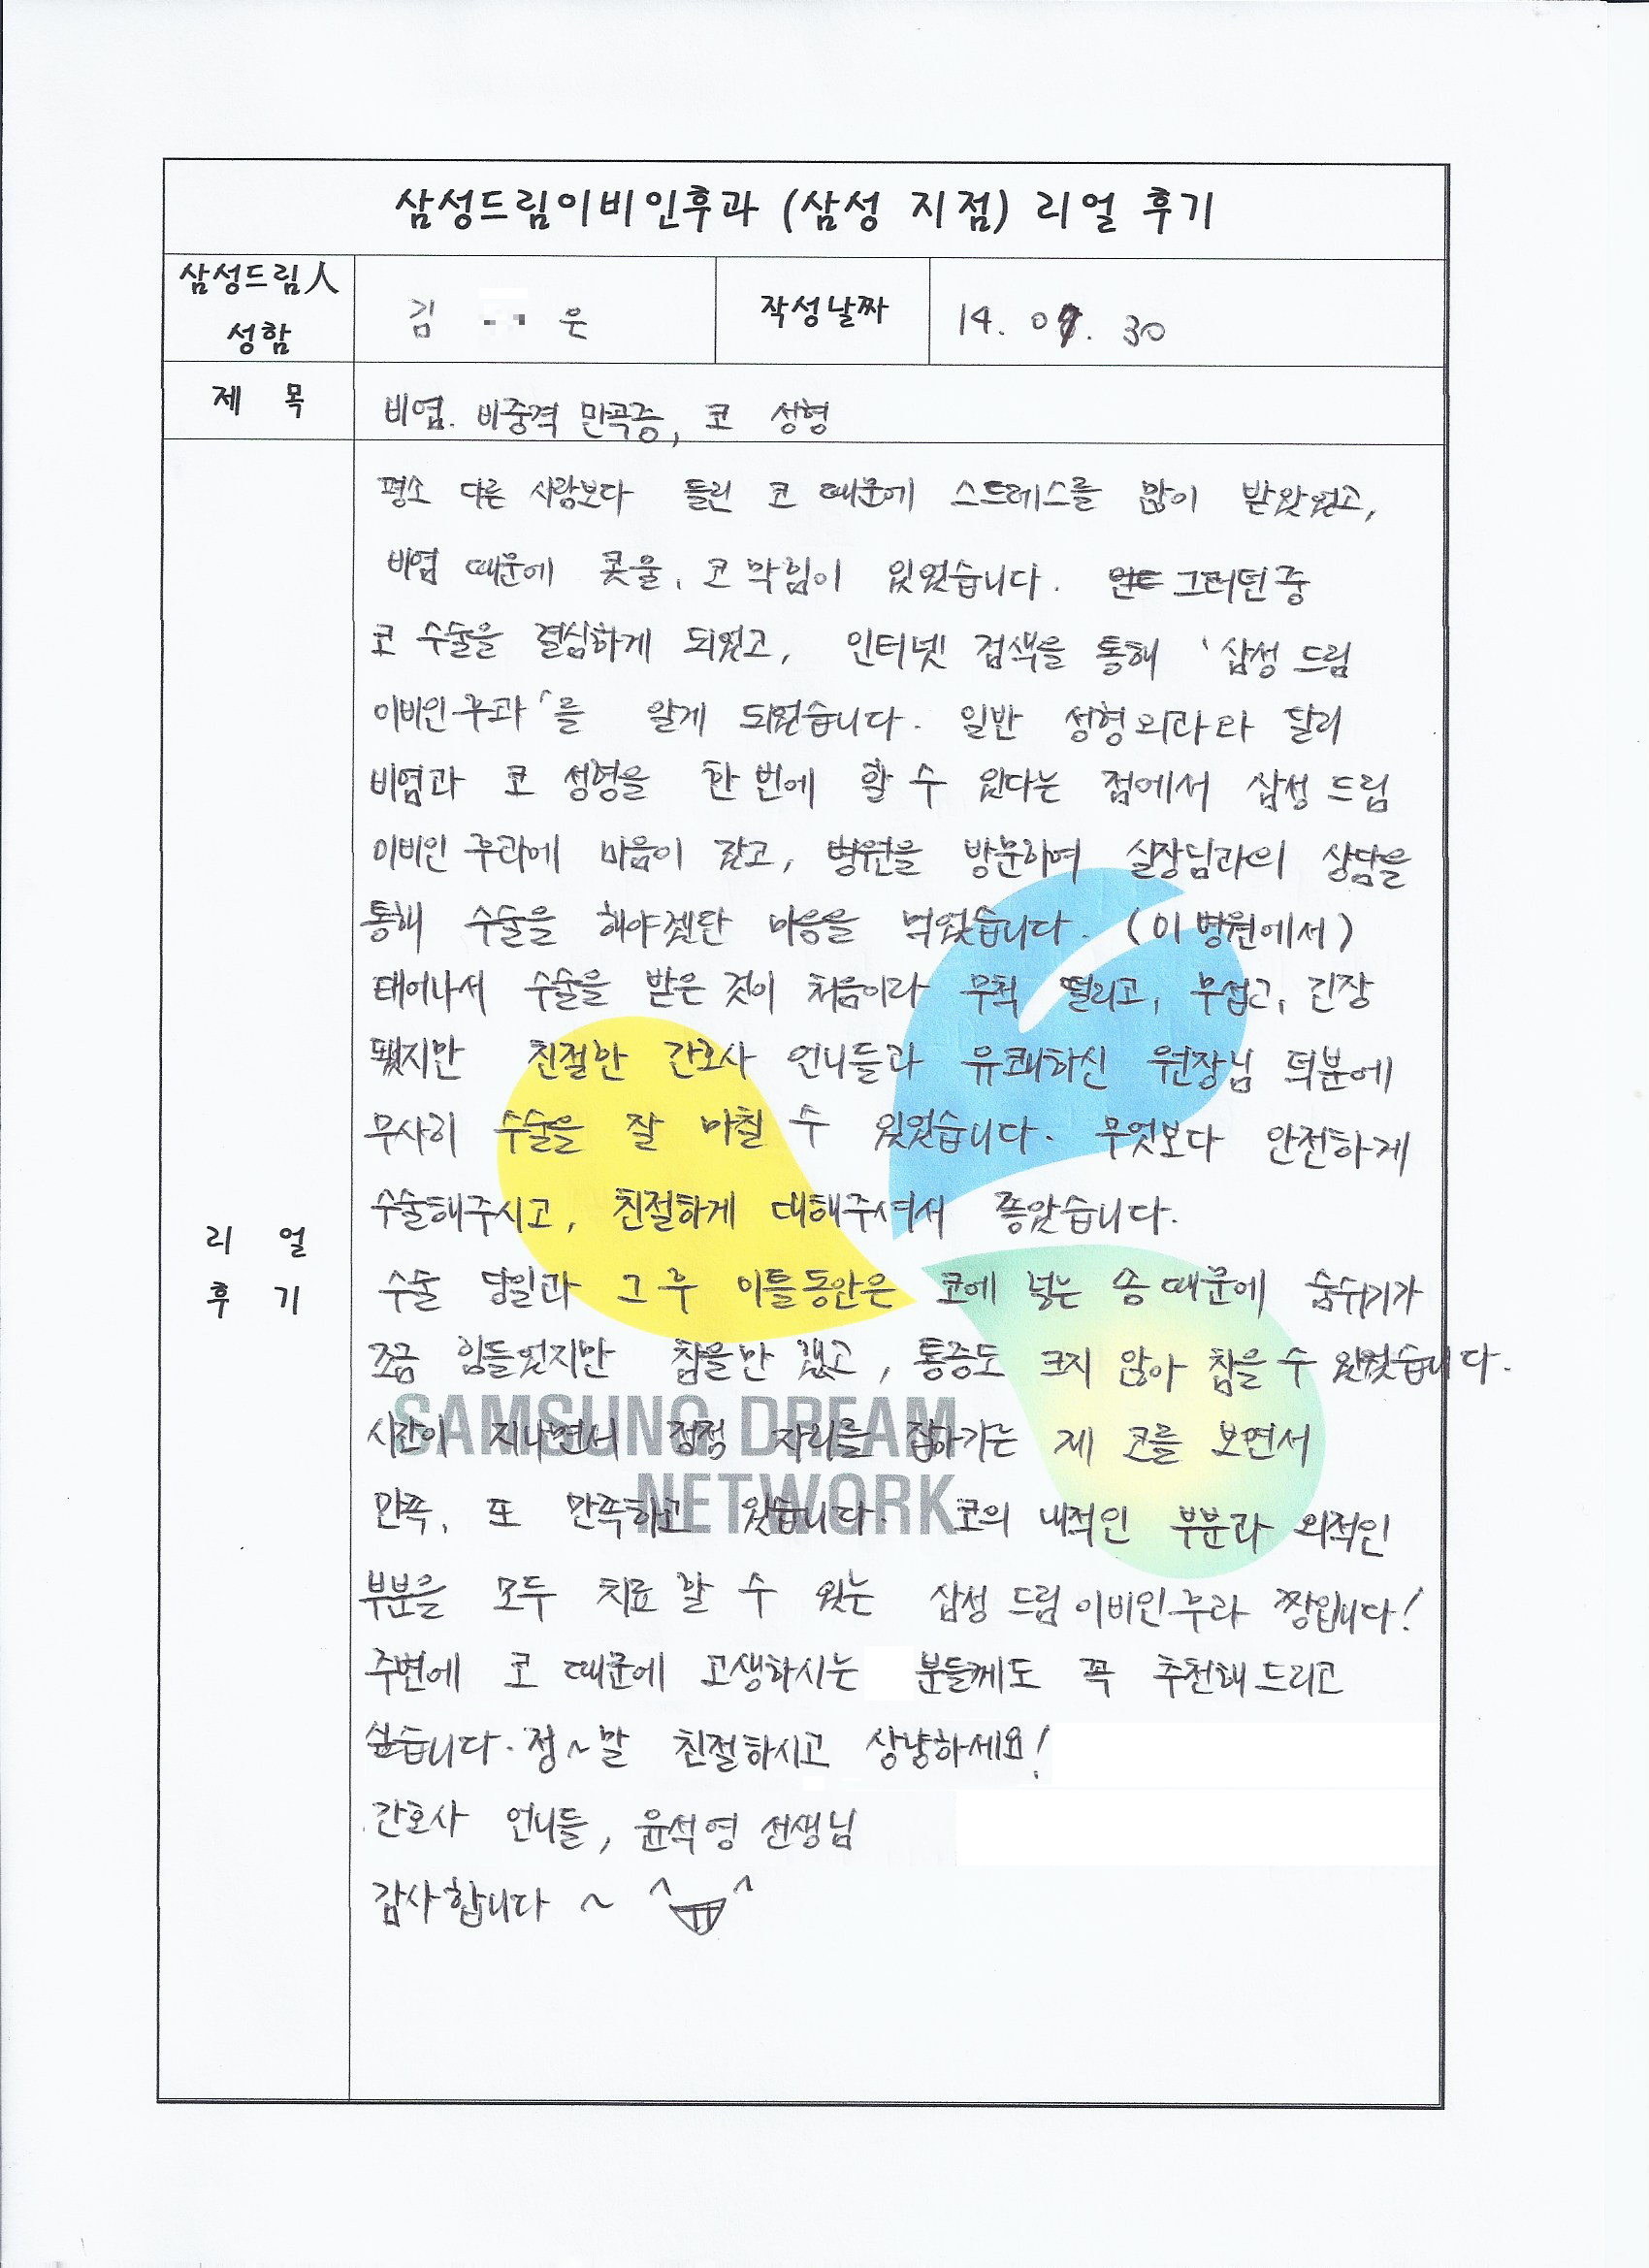 삼성드림이비인후과 (삼성 지점) 리얼 후기
삼성드림人
성함
김 은
작성날짜
14. 07. 30
제 목
비염. 비중격 만곡증, 코 성형
리 얼
후 기
평소 다른 사람보다 들린 코 때문에 스트레스를 많이 받았었고,
비염 때문에 콧물, 코막힘이 있었습니다. 그러던 중
코 수술을 결심하게 되었고, 인터넷 검색을 통해 '삼성 드림
이비인후과'를 알게 되었습니다. 일반 성형외과와 달리
비염과 코 성형을 한 번에 할 수 있다는 점에서 삼성 드림
이비인후과에 마음이 갔고, 병원을 방문하여 실장님과의 상담을
통해 수술을 해야겠단 마음을 먹었습니다. (이 병원에서)
태어나서 수술을 받은 것이 처음이라 무척 떨리고, 무섭고, 긴장
됐지만 친절한 간호사 언니들과 유쾌하신 원장님 덕분에
무사히 수술을 잘 마칠 수 있었습니다. 무엇보다 안전하게
수술해주시고, 친절하게 대해주셔서 좋았습니다.
수술 당일과 그 후 이틀동안은 코에 넣는 솜 때문에 숨쉬기가
조금 힘들었지만 참을만 했고, 통증도 크지 않아 참을 수 있었습니다.
시간이 지나면서 점점 자리를 잡아가는 제 코를 보면서
만족, 또 만족하고 있습니다. 코의 내적인 부분과 외적인
부분을 모두 치료 할 수 있는 삼성 드림 이비인후과 짱입니다!
주변에 코 때문에 고생하시는 분들께도 꼭 추천해 드리고
싶습니다. 정~말 친절하시고 상냥하세요!
간호사 언니들, 윤석영 선생님
감사합니다 ~ ^ ^
SAMSUNG DREAM
NETWORK